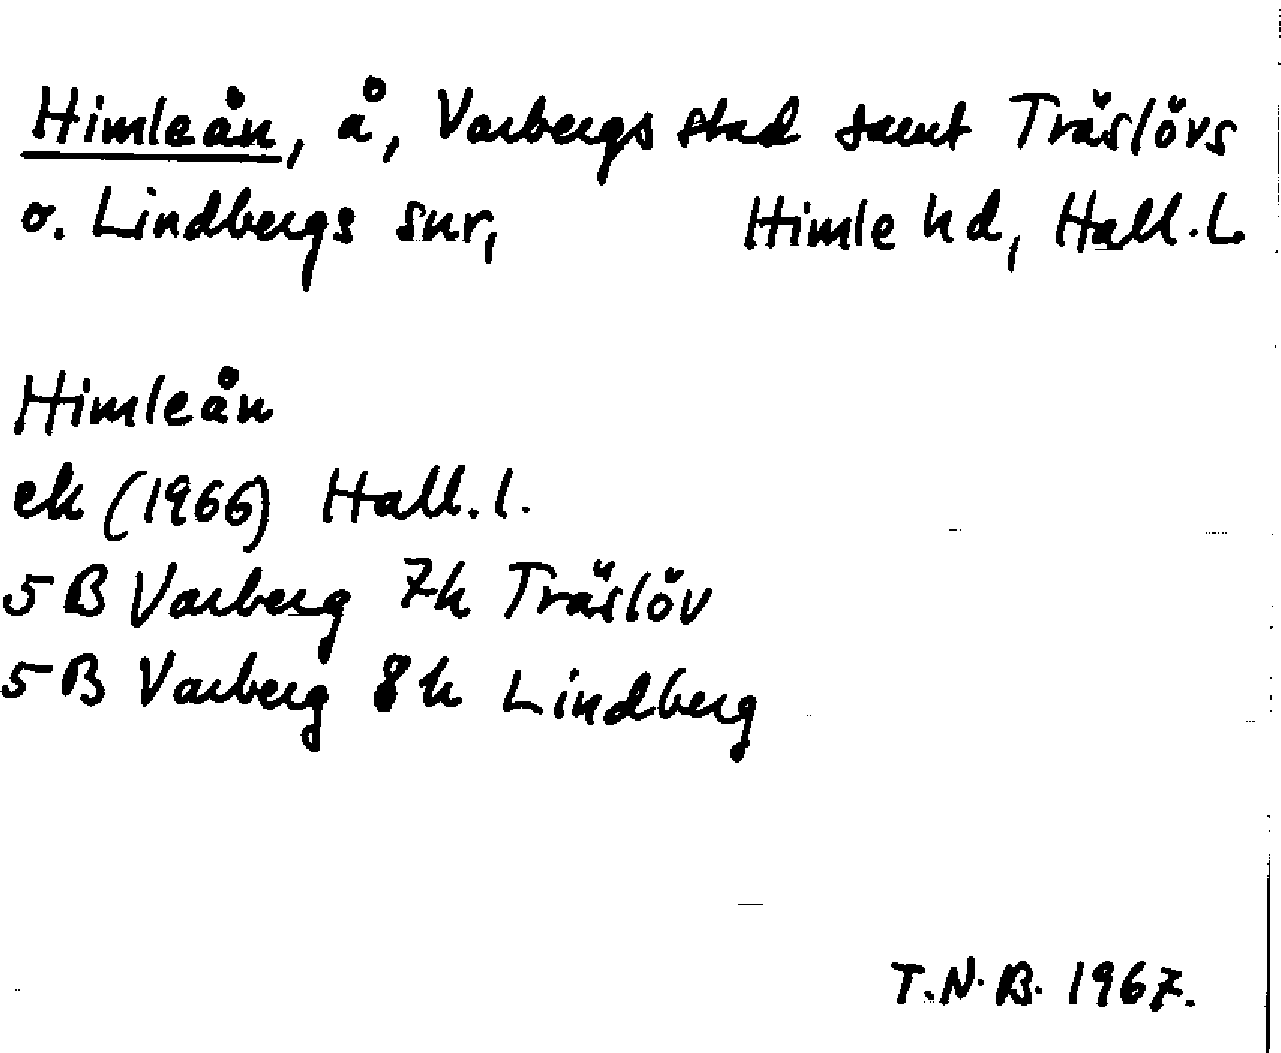 Himleån, å, Varbergs stad samt Träslövs
o. Lindbergs snr, Himle hd, Hall. l.
Himleån
ek (1966) Hall. l.
5 B Varberg 7h Träslöv
5 B Varberg 8h Lindberg
T.N.B. 1967.